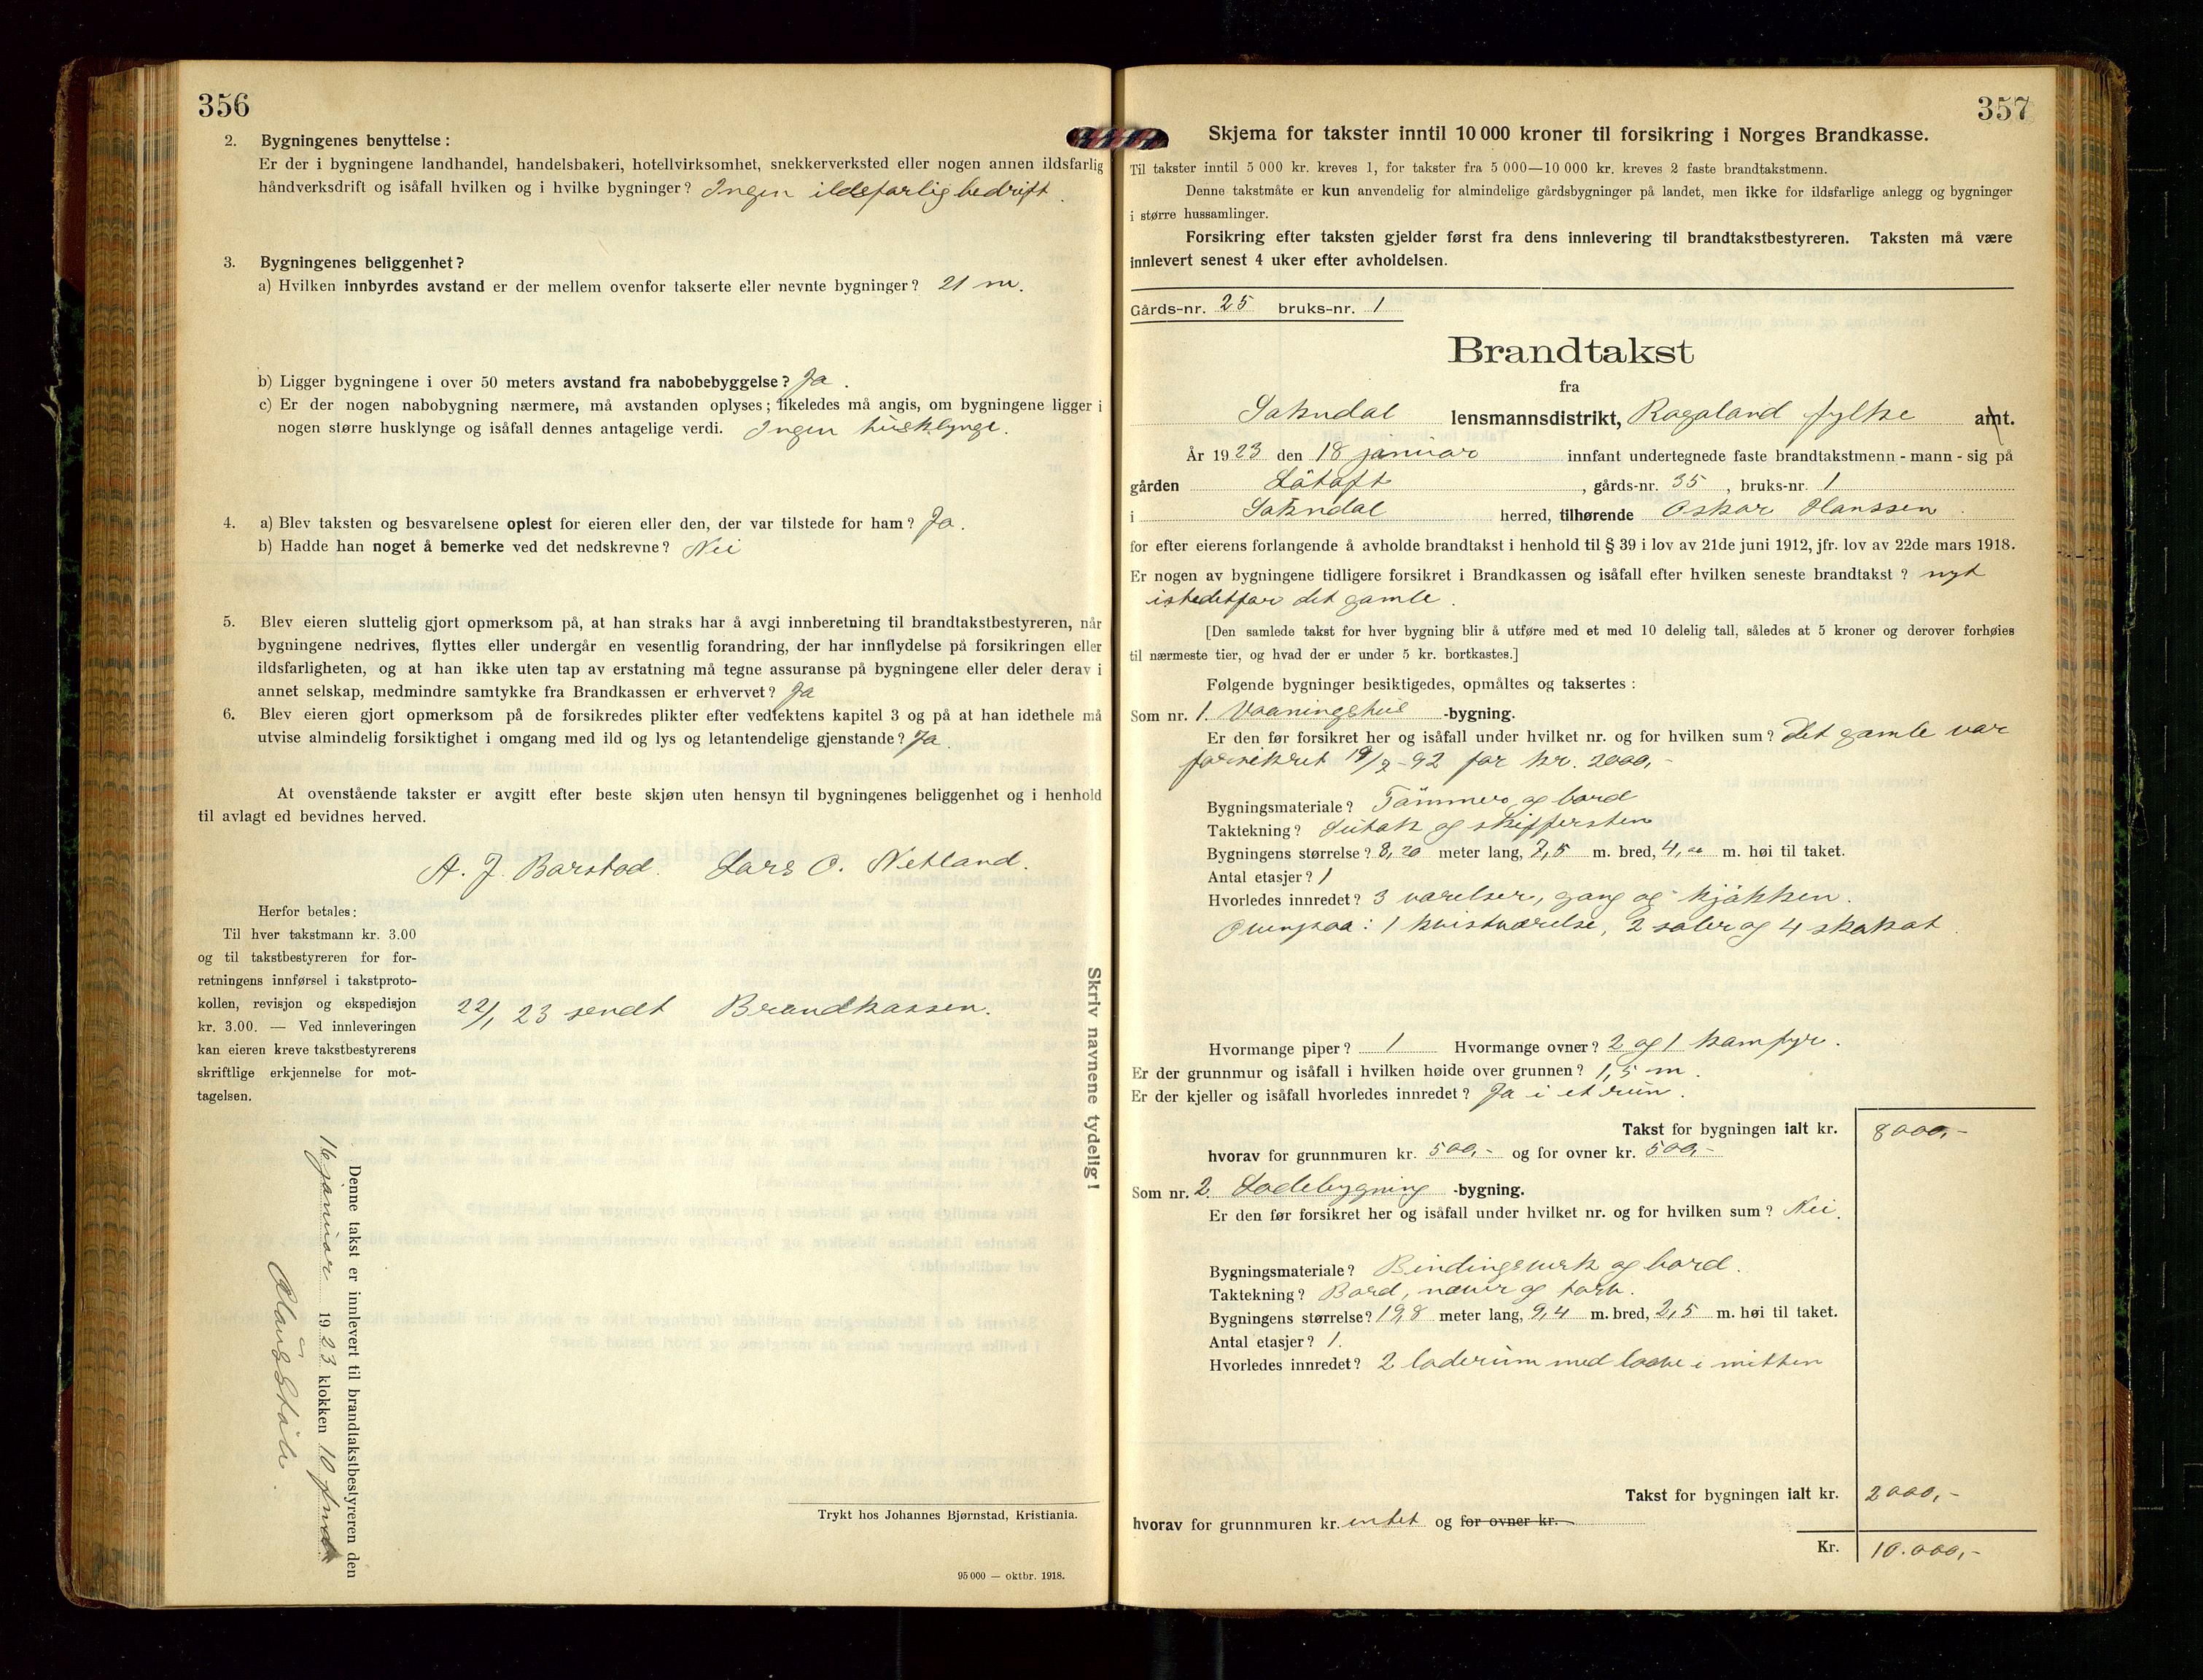 356
2. Bygningenes benyttelse:
Er der i bygningene landhandel, handelsbakeri, hotellvirksomhet, snekkerverksted eller nogen annen ildsfarlig
håndverksdrift og isåfall hvilken og i hvilke bygninger? Ingen ildsfarlig bedrift.
3. Bygningenes beliggenhet?
a) Hvilken innbyrdes avstand er der mellem ovenfor takserte eller nevnte bygninger? 21 m.
b) Ligger bygningene i over 50 meters avstand fra nabobebyggelse? Ja.
c) Er der nogen nabobygning nærmere, må avstanden oplyses; likeledes må angis, om bygningene ligger i
nogen større husklynge og isåfall dennes antagelige verdi. Ingen husklynge.
4. a) Blev taksten og besvarelsene oplest for eieren eller den, der var tilstede for ham? Ja.
b) Hadde han noget å bemerke ved det nedskrevne? Nei
5. Blev eieren sluttelig gjort opmerksom på, at han straks har å avgi innberetning til brandtakstbestyreren, når
bygningene nedrives, flyttes eller undergår en vesentlig forandring, der har innflydelse på forsikringen eller
ildsfarligheten, og at han ikke uten tap av erstatning må tegne assuranse på bygningene eller deler derav i
annet selskap, medmindre samtykke fra Brandkassen er erhvervet? Ja
6. Blev eieren gjort opmerksom på de forsikredes plikter efter vedtektens kapitel 3 og på at han idethele må
utvise almindelig forsiktighet i omgang med ild og lys og letantendelige gjenstande? Ja.
At ovenstående takster er avgitt efter beste skjøn uten hensyn til bygningenes beliggenhet og i henhold
til avlagt ed bevidnes herved.
A. J. Barstad. Lars O. Netland.
Herfor betales:
Til hver takstmann kr. 3.00
og til takstbestyreren for for-
retningens innførsel i takstproto-
kollen, revisjon og ekspedisjon
kr. 3.00. — Ved innleveringen
kan eieren kreve takstbestyrerens
skriftlige erkjennelse for mot-
tagelsen.
22/1 23 sendt Brandkassen.
Skriv navnene tydelig!
Denne takst er innlevert til brandtakstbestyreren den
16 januar 1923 klokken 10 fmd
Trykt hos Johannes Bjørnstad, Kristiania.
95 000 — oktbr. 1918.
357
Skjema for takster inntil 10 000 kroner til forsikring i Norges Brandkasse.
Til takster inntil 5 000 kr. kreves 1, for takster fra 5 000—10 000 kr. kreves 2 faste brandtakstmenn.
Denne takstmåte er kun anvendelig for almindelige gårdsbygninger på landet, men ikke for ildsfarlige anlegg og bygninger
i større hussamlinger.
Forsikring efter taksten gjelder først fra dens innlevering til brandtakstbestyreren. Taksten må være
innlevert senest 4 uker efter avholdelsen.
Gårds-nr. 25 bruks-nr. 1
Brandtakst
fra
Sokndal lensmannsdistrikt, Rogaland fylke amt.
År 1923 den 18 januar innfant undertegnede faste brandtakstmenn - mann - sig på
gården Låtoft, gårds-nr. 35, bruks-nr. 1
i Sokndal herred, tilhørende Oskar Hanssen.
for efter eierens forlangende å avholde brandtakst i henhold til § 39 i lov av 21de juni 1912, jfr. lov av 22de mars 1918.
Er nogen av bygningene tidligere forsikret i Brandkassen og isåfall efter hvilken seneste brandtakst? nyt
istedetfor det gamle.
[Den samlede takst for hver bygning blir å utføre med et med 10 delelig tall, således at 5 kroner og derover forhøies
til nærmeste tier, og hvad der er under 5 kr. bortkastes.]
Følgende bygninger besiktigedes, opmåltes og taksertes:
Som nr. 1. Vaaningshus -bygning.
Er den før forsikret her og isåfall under hvilket nr. og for hvilken sum? Det gamle var
forsikret 19/7-92 for kr. 2000,-
Bygningsmateriale? Tömmer og bord
Taktekning? Sutak og skiffersten
Bygningens størrelse? 8,20 meter lang, 7,5 m. bred, 4,00 m. høi til taket.
Antal etasjer? 1
Hvorledes innredet? 3 værelser, gang og kjökken.
Ovenpaa: 1 kvistværelse, 2 saler og 4 skakot.
Hvormange piper? 1 Hvormange ovner? 2 og 1 komfyr.
Er der grunnmur og isåfall i hvilken høide over grunnen? 1,5 m.
Er der kjeller og isåfall hvorledes innredet? Ja i et rum.
Takst for bygningen ialt kr. 8000,-
hvorav for grunnmuren kr. 500,- og for ovner kr. 500,-
Som nr. 2. Lodebygning -bygning.
Er den før forsikret her og isåfall under hvilket nr. og for hvilken sum? Nei.
Bygningsmateriale? Bindingsverk og bord.
Taktekning? Bord, never og torv.
Bygningens størrelse? 19,8 meter lang, 9,4 m. bred, 2,5 m. høi til taket.
Antal etasjer? 1.
Hvorledes innredet? 2 laderum med laave i mitten
Takst for bygningen ialt kr. 2000,-
hvorav for grunnmuren kr. intet og for ovner kr.
Kr. 10.000,-